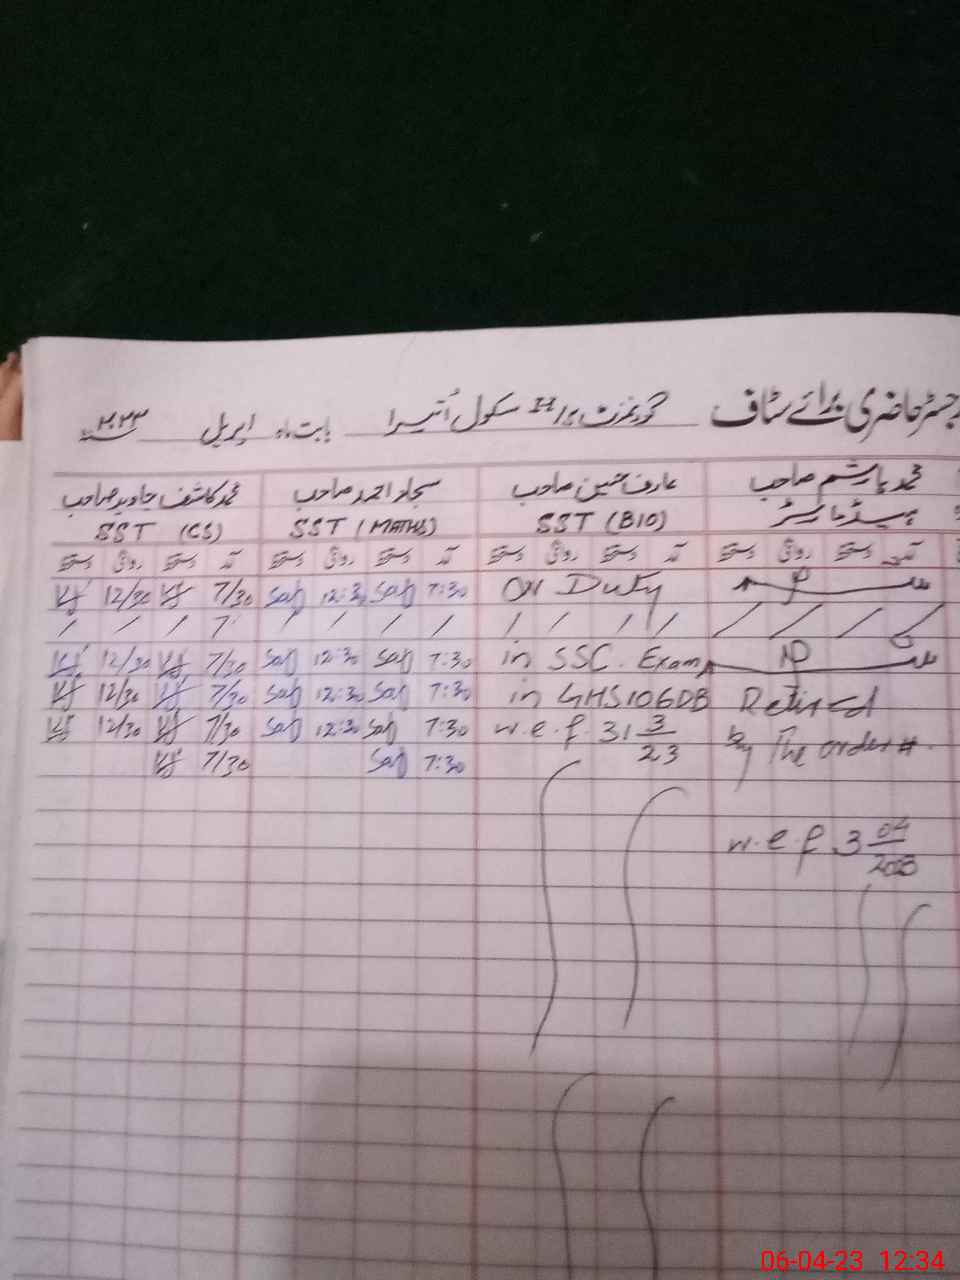 رجسٹر حاضری برائے سٹاف گورنمنٹ ہائی H سکول اُتیرا بابت ماہ اپریل ۲۰۲۳
محمد ہاشم صاحب عارف حسین صاحب سجاد احمد صاحب محمد کاشف جاوید صاحب
ہیڈ ماسٹر SST (BIO) SST (MATHS) SST (CS)
آمد دستخط روانگی دستخط آمد دستخط روانگی دستخط آمد دستخط روانگی دستخط آمد دستخط روانگی دستخط
12/30 7/30 Saj 12:30 Saj 7:30 On Duty
/ / / / / / / / / / / / / / /
12/30 7/30 Saj 12:30 Saj 7:30 in SSC. Exam
12/30 7/30 Saj 12:30 Saj 7:30 in GHS106DB Retired
12/30 7/30 Saj 12:30 Saj 7:30 w.e.f. 31 3/23 by The order #.
7/30 Saj 7:30
w.e.f 3 04/2023
06-04-23 12:34